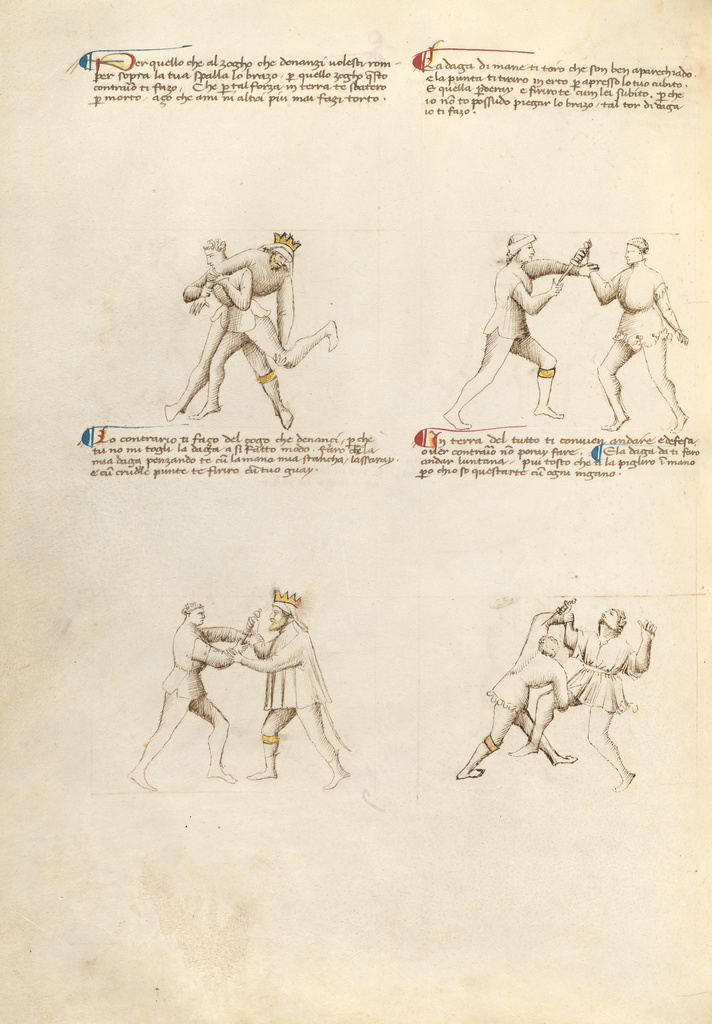 Per quello che al zogho che denanzi volesti rom-
per sopra la tua spalla lo brazo, p̱ quello zogho q̄sto
contrario ti fazo, Che p̱ tal forza in terra te sbatero
p̱ morto, aço che ami ni altri piu mai fazi torto.
La daga di mane ti toro che son ben aparechiado
E la punta ti tiraro in erto p̱ apresso lo tuo cubito.
E quella p̱deray e firirote cum lei subito, p̱ che
io nō to possudo piegar lo brazo, tal tor di daga
io ti fazo.
Lo contrario ti faço del zogo che denanci, p̱ che
tu no mi togli la daga a si fatto modo. Faro de la
mia daga penzando te cū la mano mia stancha, lassaray
e cū crudele punte te firiro cū tuo guay.
In terra del tutto ti convien andare e defesa
over contrario nō poray fare. E la daga da ti faro
andar luntana, piu tosto che a la piglirò ī mano
po chio so questarte cū ogni ingano.